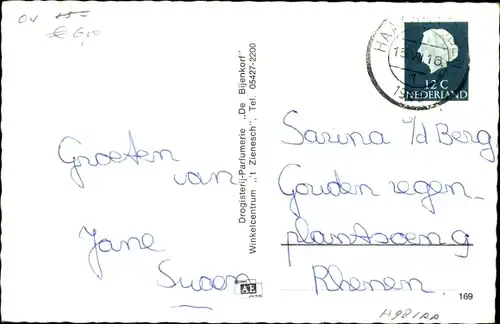 OV 15=
€ 6,10
15.VII.16
1
12 C
NEDERLAND
Groeten
van
Jane
Suoen
Drogisterij-Parfumerie „De Bijenkorf"
Winkelcentrum „'t Zienesch", Tel. 05427-2200
AE
Sarina v/d Berg
Gouden regen-
plantsoeng
Rhenen.
169
H981AA